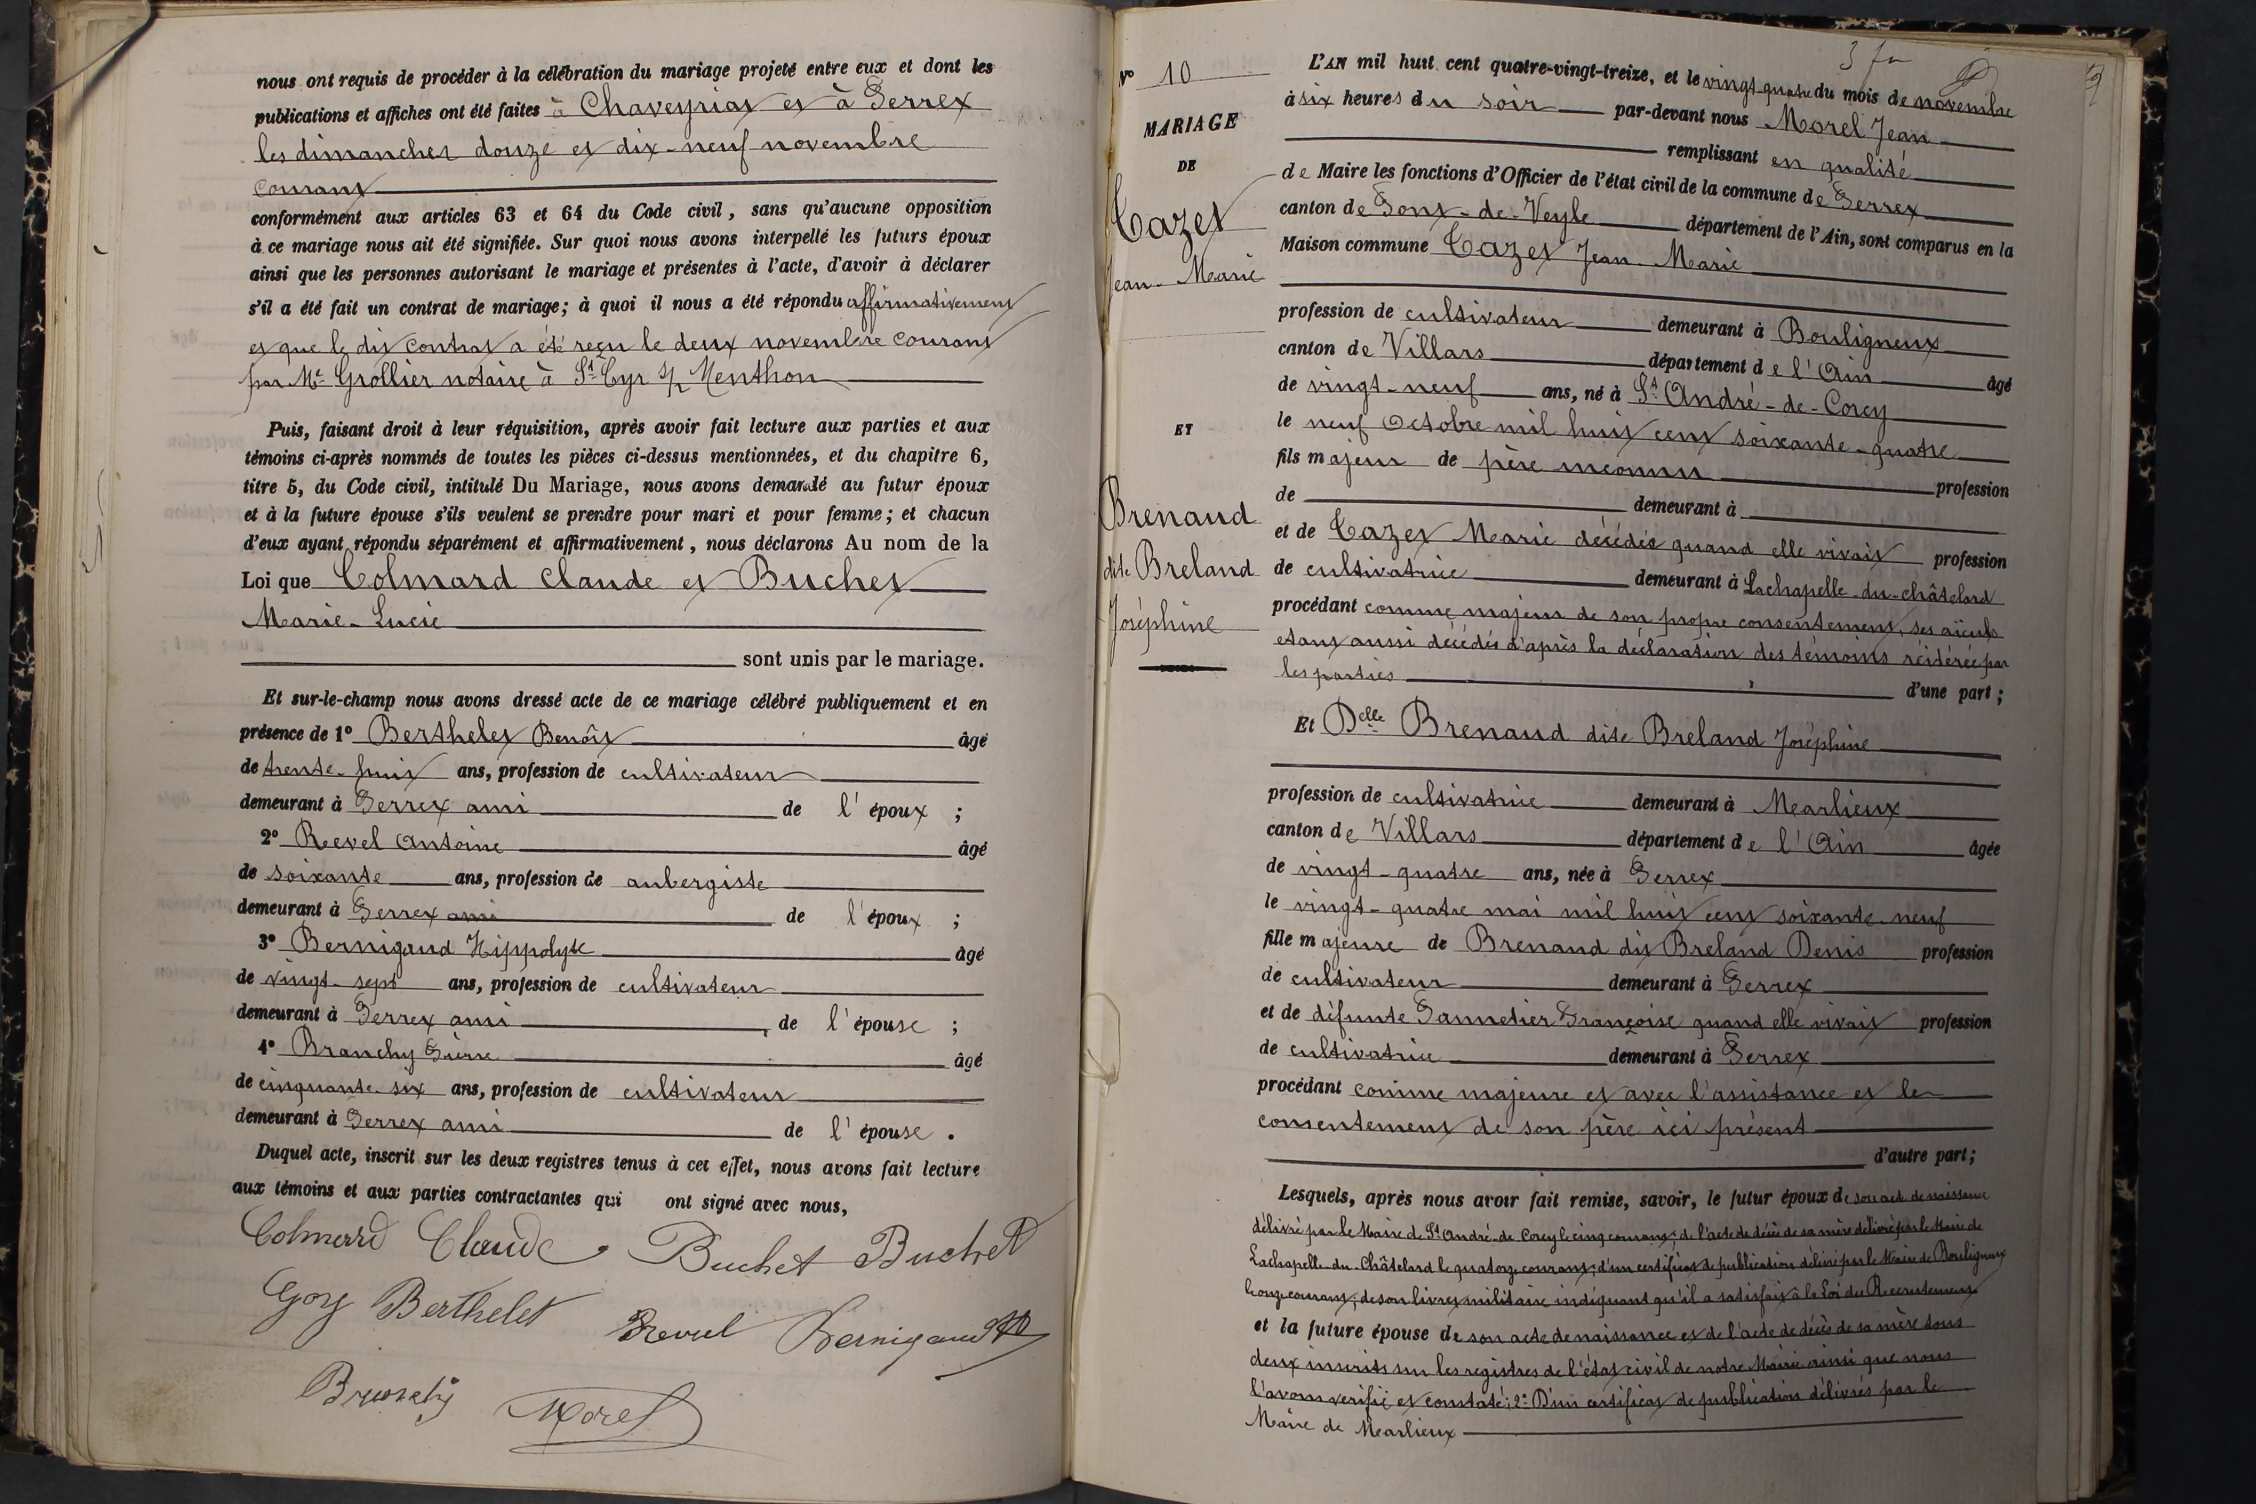 nous ont requis de procéder à la célébration du mariage projeté entre eux et dont les
publications et affiches ont été faites à Chaveyriat et à Perrex
les dimanches douze et dix-neuf novembre
courant
conformément aux articles 63 et 64 du Code civil, sans qu'aucune opposition
à ce mariage nous ait été signifiée. Sur quoi nous avons interpellé les futurs époux
ainsi que les personnes autorisant le mariage et présentes à l'acte, d'avoir à déclarer
s'il a été fait un contrat de mariage; à quoi il nous a été répondu affirmativement
et que le dit contrat a été reçu le deux novembre courant
par Me Grollier notaire à St Cyr s/ Menthon
Puis, faisant droit à leur réquisition, après avoir fait lecture aux parties et aux
témoins ci-après nommés de toutes les pièces ci-dessus mentionnées, et du chapitre 6,
titre 5, du Code civil, intitulé Du Mariage, nous avons demandé au futur époux
et à la future épouse s'ils veulent se prendre pour mari et pour femme; et chacun
d'eux ayant répondu séparément et affirmativement, nous déclarons Au nom de la
Loi que Colmard Claude et Buchet
Marie-Lucie
sont unis par le mariage.
Et sur-le-champ nous avons dressé acte de ce mariage célébré publiquement et en
présence de 1° Berthelet Benoît âgé
de trente-huit ans, profession de cultivateur
demeurant à Perrex ami de l'époux ;
2° Revel Antoine âgé
de soixante ans, profession de aubergiste
demeurant à Perrex ami de l'époux ;
3° Bernigaud Hippolyte âgé
de vingt-sept ans, profession de cultivateur
demeurant à Perrex ami de l'épouse ;
4° Branchy Pierre âgé
de cinquante-six ans, profession de cultivateur
demeurant à Perrex ami de l'épouse .
Duquel acte, inscrit sur les deux registres tenus à cet effet, nous avons fait lecture
aux témoins et aux parties contractantes qui ont signé avec nous,
Colmard Claude Buchet Buchet
Goy Berthelet Revel Bernigaud
Branchy Morel
N° 10
MARIAGE
DE
Cazet
Jean-Marie
ET
Brenaud
dite Breland
Joséphine
L'AN mil huit cent quatre-vingt-treize, et le vingt-quatre du mois de novembre
à six heures du soir par-devant nous Morel Jean
remplissant en qualité
de Maire les fonctions d'Officier de l'état civil de la commune de Perrex
canton de Pont-de-Veyle département de l'Ain, sont comparus en la
Maison commune Cazet Jean-Marie
profession de cultivateur demeurant à Bouligneux
canton de Villars département de l'Ain âgé
de vingt-neuf ans, né à St André-de-Corcy
le neuf Octobre mil huit cent soixante-quatre
fils majeur de père inconnu profession
de demeurant à
et de Cazet Marie décédée quand elle vivait profession
de cultivatrice demeurant à Lachapelle-du-châtelard
procédant comme majeur de son propre consentement, ses aïeuls
étant aussi décédés d'après la déclaration des témoins réitérée par
les parties d'une part;
Et Delle Brenaud dite Breland Joséphine
profession de cultivatrice demeurant à Marlieux
canton de Villars département de l'Ain âgée
de vingt-quatre ans, née à Perrex
le vingt-quatre mai mil huit cent soixante-neuf
fille majeure de Brenaud dit Breland Denis profession
de cultivateur demeurant à Perrex
et de défunte Pannetier Françoise quand elle vivait profession
de cultivatrice demeurant à Perrex
procédant comme majeure et avec l'assistance et le
consentement de son père ici présent
d'autre part;
Lesquels, après nous avoir fait remise, savoir, le futur époux de son acte de naissance
délivré par le Maire de St André-de-Corcy le cinq courant; de l'acte de décès de sa mère délivré par le Maire de
Lachapelle-du-Châtelard le quatorze courant; d'un certificat de publication délivré par le Maire de Bouligneux
le onze courant; de son livret militaire indiquant qu'il a satisfait à la Loi du Recrutement
et la future épouse de son acte de naissance et de l'acte de décès de sa mère tous
deux inscrits sur les registres de l'état civil de notre Mairie ainsi que nous
l'avons vérifié et constaté; 2° D'un certificat de publication délivrés par le
Maire de Marlieux